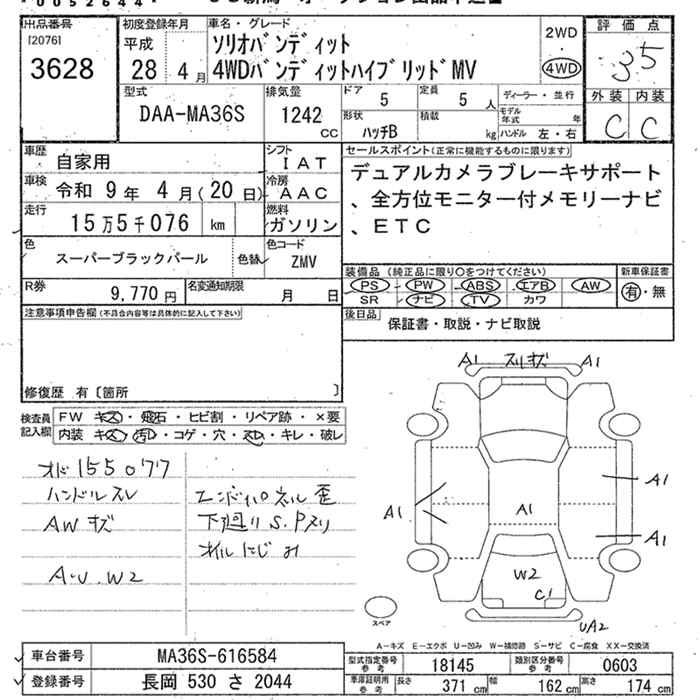 出品番号
[2076]
3628
初度登録年月
平成
28 4月
車名・グレード
ソリオバンディット
4WDバンディットハイブリッドMV
2WD
4WD
評価点
3.5
外装 内装
C C
型式
DAA-MA36S
排気量
1242 CC
ドア 5
定員 5 人
ディーラー・並行
形状
ハッチB
積載
kg
モデル年式 年
ハンドル 左・右
車歴
自家用
シフト
IAT
車検
令和 9年 4月(20日)
冷房
AAC
走行
15万5千076 km
燃料
ガソリン
色
スーパーブラックパール
色替
色コード
ZMV
R券
9,770円
名変通知期限
月 日
セールスポイント(正常に機能するものに限ります)
デュアルカメラブレーキサポート
、全方位モニター付メモリーナビ
、ETC
装備品(純正品に限り○をつけてください)
PS PW ABS エアB AW
SR ナビ TV カワ
新車保証書
有・無
後日品
保証書・取説・ナビ取説
注意事項申告欄(不具合内容等は具体的に記入して下さい)
修復歴 有〔箇所 〕
検査員
記入欄
FW キズ・飛石・ヒビ割・リペア跡・×要
内装 キズ・汚レ・コゲ・穴・スレ・キレ・破レ
オド 155077
ハンドルスレ
AW キズ
A・U.W2
エンドパネル歪
下廻り S.Pスリ
オイルにじみ
A1 スリキズ A1
A1
A1
A1
A1
W2
C1
UA2
スペア
A-キズ E-エクボ U-凹み W-補修跡 S-サビ C-腐食 XX-交換済
車台番号
MA36S-616584
登録番号
長岡 530 さ 2044
型式指定番号
参考
18145
類別区分番号
参考
0603
車庫証明用
参考
長さ 371 cm
幅 162 cm
高さ 174 cm